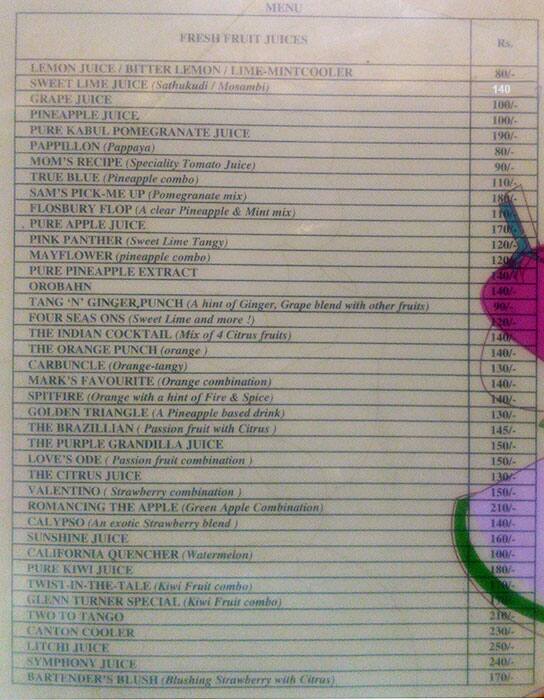 MENU
FRESH FRUIT JUICES Rs.
LEMON JUICE / BITTER LEMON / LIME-MINTCOOLER 80/-
SWEET LIME JUICE (Sathukudi / Mosambi) 140
GRAPE JUICE 100/-
PINEAPPLE JUICE 100/-
PURE KABUL POMEGRANATE JUICE 190/-
PAPPILLON (Pappaya) 80/-
MOM'S RECIPE (Speciality Tomato Juice) 90/-
TRUE BLUE (Pineapple combo) 110/-
SAM'S PICK-ME UP (Pomegranate mix) 180/-
FLOSBURY FLOP (A clear Pineapple & Mint mix) 110/-
PURE APPLE JUICE 170/-
PINK PANTHER (Sweet Lime Tangy) 120/-
MAYFLOWER (pineapple combo) 120
PURE PINEAPPLE EXTRACT 140/-
OROBAHN 140/-
TANG 'N' GINGER,PUNCH (A hint of Ginger, Grape blend with other fruits) 90/-
FOUR SEAS ONS (Sweet Lime and more !) 120/-
THE INDIAN COCKTAIL (Mix of 4 Citrus fruits) 140/-
THE ORANGE PUNCH (orange ) 140/-
CARBUNCLE (Orange-tangy) 130/-
MARK'S FAVOURITE (Orange combination) 140/-
SPITFIRE (Orange with a hint of Fire & Spice) 140/-
GOLDEN TRIANGLE (A Pineapple based drink) 130/-
THE BRAZILLIAN ( Passion fruit with Citrus ) 145/-
THE PURPLE GRANDILLA JUICE 150/-
LOVE'S ODE ( Passion fruit combination ) 150/-
THE CITRUS JUICE 130/-
VALENTINO ( Strawberry combination ) 150/-
ROMANCING THE APPLE (Green Apple Combination) 210/-
CALYPSO (An exotic Strawberry blend ) 140/-
SUNSHINE JUICE 160/-
CALIFORNIA QUENCHER (Watermelon) 100/-
PURE KIWI JUICE 180/-
TWIST-IN-THE-TALE (Kiwi Fruit combo)
GLENN TURNER SPECIAL (Kiwi Fruit combo)
TWO TO TANGO 210/-
CANTON COOLER 230/-
LITCHI JUICE 250/-
SYMPHONY JUICE 240/-
BARTENDER'S BLUSH (Blushing Strawberry with Citrus) 170/-